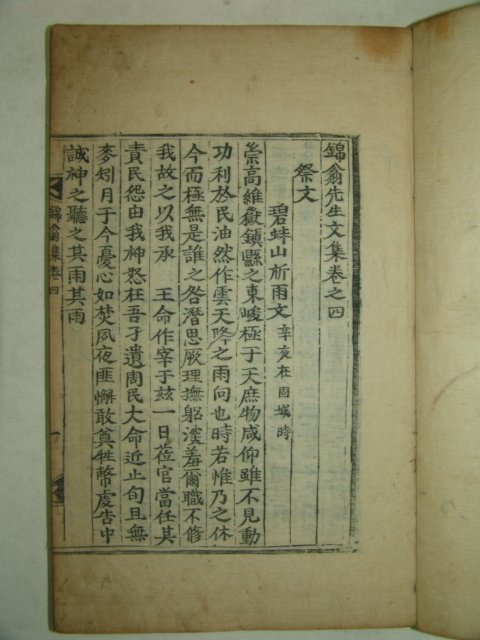 錦翁先生文集卷之四
祭文
碧蚌山祈雨文 辛亥在固城時
崇高維嶽鎮縣之東峻極于天庶物咸仰雖不見動
功利於民油然作雲天降之雨向也時若惟乃之休
今而極無是誰之咎潛思厥理撫躬深羞爾職不修
我故之以我承 王命作宰于茲一日莅官當任其
責民怨由我神怒在吾孑遺周民大命近止旬且無
麥矧月于今憂心如焚夙夜匪懈敢奠牲幣虔告中
誠神之聽之其雨其雨
錦翁集 卷四 一